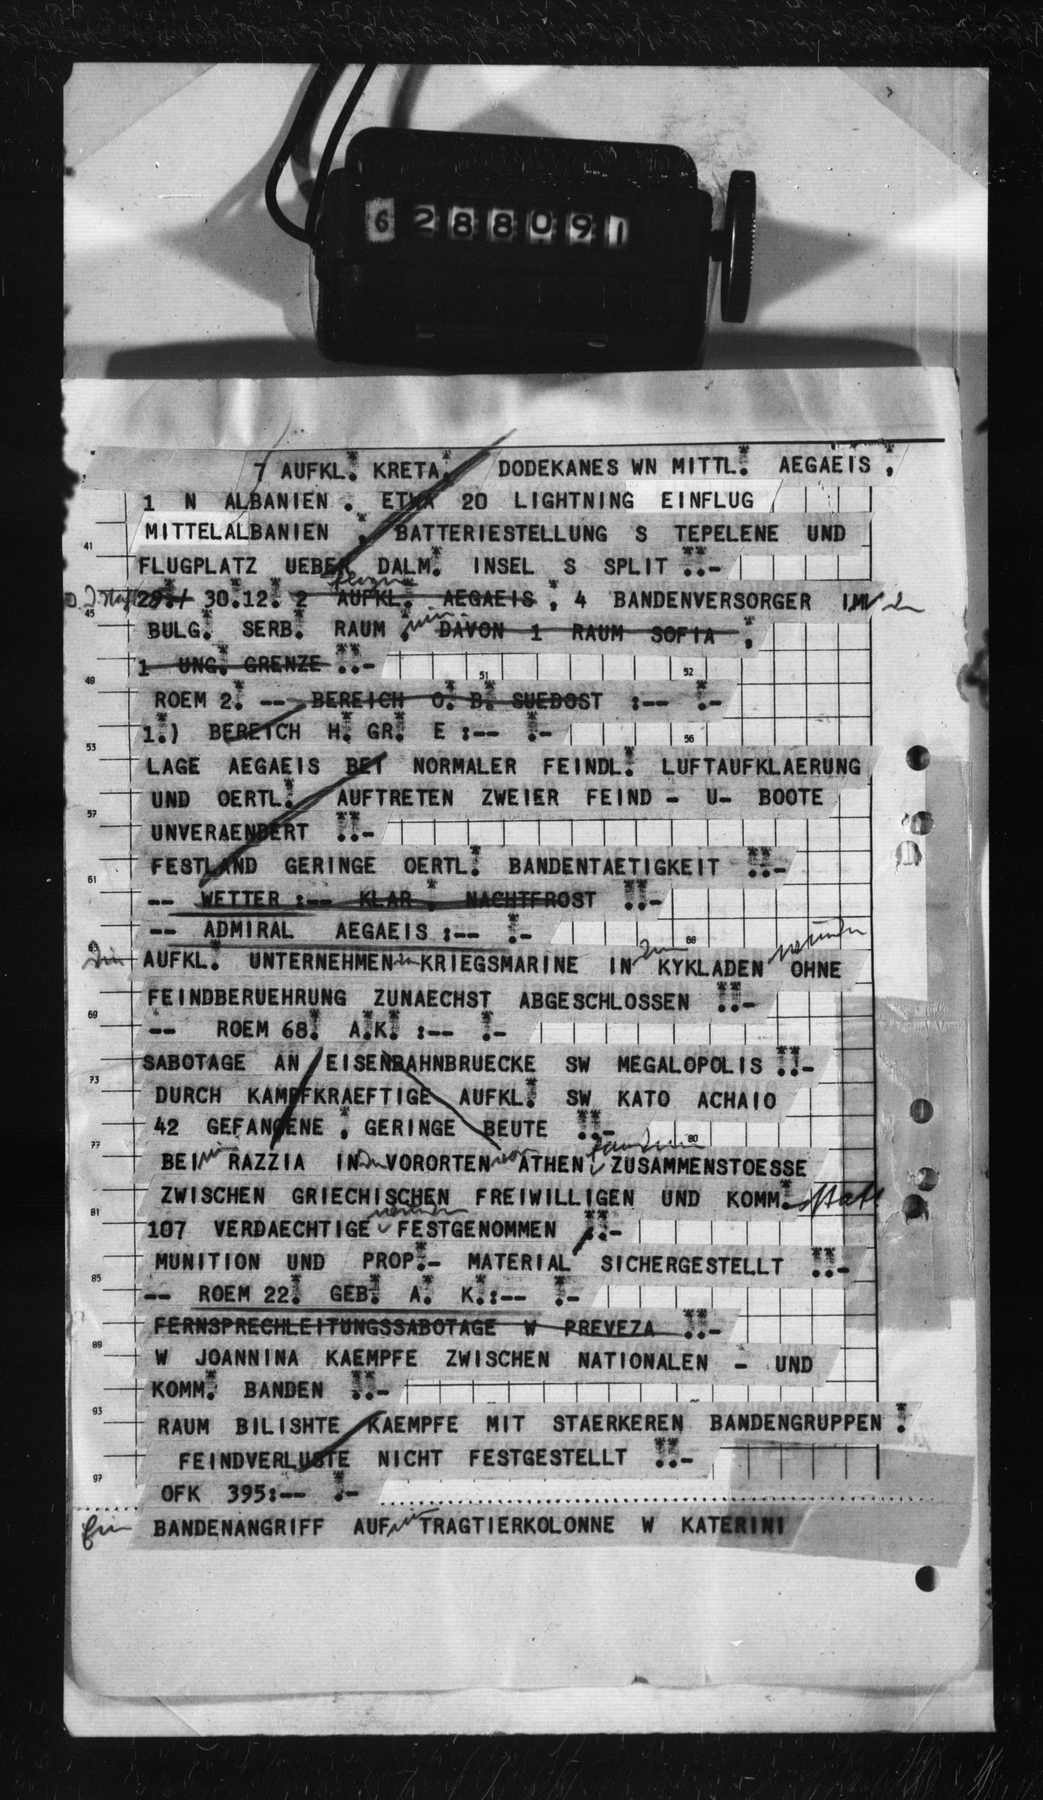 6288091
7 AUFKL. KRETA, DODEKANES WN MITTL. AEGAEIS,
1 N ALBANIEN. ETWA 20 LIGHTNING EINFLUG
MITTELALBANIEN, BATTERIESTELLUNG S TEPELENE UND
41
FLUGPLATZ UEBER DALM. INSEL S SPLIT ..-
29./ 30.12. 2 AUFKL. AEGAEIS, 4 BANDENVERSORGER IM
45
BULG. SERB. RAUM. DAVON 1 RAUM SOFIA,
1 UNG. GRENZE ..-
49 51 52
ROEM 2. -- BEREICH O. B. SUEDOST :-- .-
1.) BEREICH H. GR. E :-- .-
53 56
LAGE AEGAEIS BEI NORMALER FEINDL. LUFTAUFKLAERUNG
UND OERTL. AUFTRETEN ZWEIER FEIND - U- BOOTE
57
UNVERAENDERT ..-
FESTLAND GERINGE OERTL. BANDENTAETIGKEIT ..-
61
-- WETTER :-- KLAR, NACHTFROST ..-
-- ADMIRAL AEGAEIS :-- .-
AUFKL. UNTERNEHMEN KRIEGSMARINE IN KYKLADEN OHNE
FEINDBERUEHRUNG ZUNAECHST ABGESCHLOSSEN ..-
69
-- ROEM 68. A.K. :-- .-
SABOTAGE AN EISENBAHNBRUECKE SW MEGALOPOLIS ..-
73
DURCH KAMPFKRAEFTIGE AUFKL. SW KATO ACHAIO
42 GEFANGENE, GERINGE BEUTE ..-
77 80
BEI RAZZIA IN VORORTEN ATHEN ZUSAMMENSTOESSE
ZWISCHEN GRIECHISCHEN FREIWILLIGEN UND KOMM.
81
107 VERDAECHTIGE FESTGENOMMEN ..-
MUNITION UND PROP.- MATERIAL SICHERGESTELLT ..-
85
-- ROEM 22. GEB. A. K.:-- .-
FERNSPRECHLEITUNGSSABOTAGE W PREVEZA ..-
89
W JOANNINA KAEMPFE ZWISCHEN NATIONALEN - UND
KOMM. BANDEN ..-
93
RAUM BILISHTE KAEMPFE MIT STAERKEREN BANDENGRUPPEN.
FEINDVERLUSTE NICHT FESTGESTELLT ..-
97
OFK 395:-- .-
BANDENANGRIFF AUF TRAGTIERKOLONNE W KATERINI